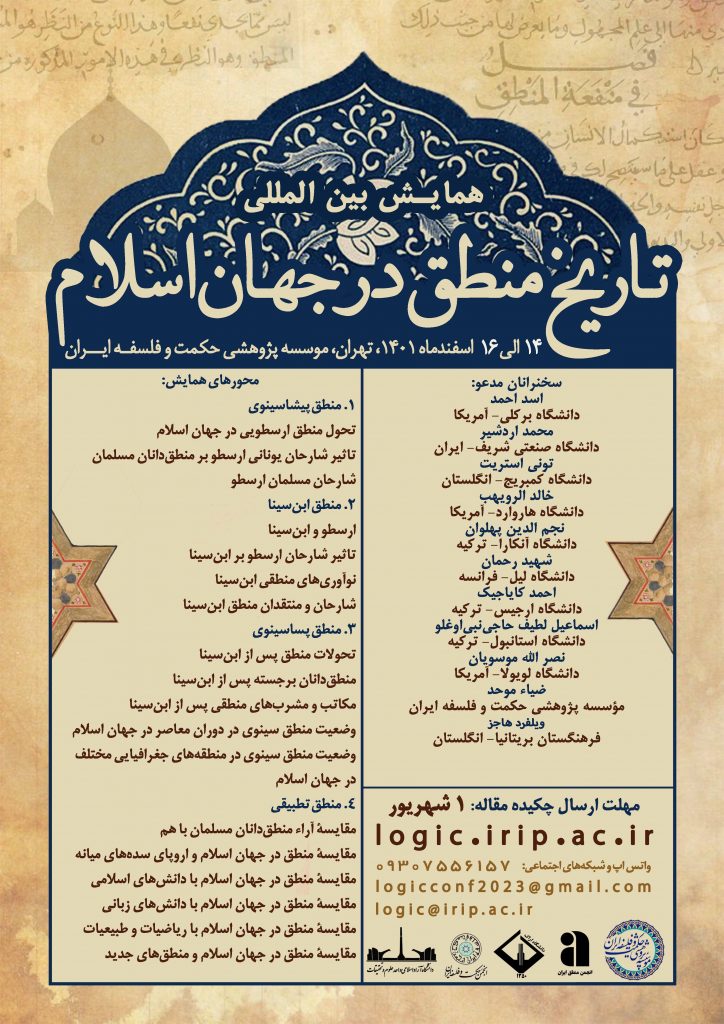 فصل
في منفعة المنطق
همایش بین المللی
تاریخ منطق در جهان اسلام
۱۴ الی ۱۶ اسفندماه ۱۴۰۱، تهران، موسسه پژوهشی حکمت و فلسفه ایـــران
سخنرانان مدعو:
اسد احمد
دانشگاه برکلی- آمریکا
محمد اردشیر
دانشگاه صنعتی شریف- ایران
تونی استریت
دانشگاه کمبریج- انگلستان
خالد الرویهب
دانشگاه هاروارد- آمریکا
نجم الدین پهلوان
دانشگاه آنکارا- ترکیه
شهید رحمان
دانشگاه لیل- فرانسه
احمد کایاجیک
دانشگاه ارجیس- ترکیه
اسماعیل لطیف حاجی‌نبی‌اوغلو
دانشگاه استانبول- ترکیه
نصر الله موسویان
دانشگاه لویولا- آمریکا
ضیاء موحد
مؤسسه پژوهشی حکمت و فلسفه ایران
ویلفرد هاجز
فرهنگستان بریتانیا- انگلستان
مهلت ارسال چکیده مقاله: ۱ شهریور
logic.irip.ac.ir
واتس اپ و شبکه‌های اجتماعی: ۰۹۳۰۷۵۵۶۱۵۷
logicconf2023@gmail.com
logic@irip.ac.ir
محورهای همایش:
۱. منطق پیشاسینوی
تحول منطق ارسطویی در جهان اسلام
تاثیر شارحان یونانی ارسطو بر منطق‌دانان مسلمان
شارحان مسلمان ارسطو
۲. منطق ابن‌سینا
ارسطو و ابن‌سینا
تاثیر شارحان ارسطو بر ابن‌سینا
نوآوری‌های منطقی ابن‌سینا
شارحان و منتقدان منطق ابن‌سینا
۳. منطق پساسینوی
تحولات منطق پس از ابن‌سینا
منطق‌دانان برجسته پس از ابن‌سینا
مکاتب و مشرب‌های منطقی پس از ابن‌سینا
وضعیت منطق سینوی در دوران معاصر در جهان اسلام
وضعیت منطق سینوی در منطقه‌های جغرافیایی مختلف
در جهان اسلام
۴. منطق تطبیقی
مقایسهٔ آراء منطق‌دانان مسلمان با هم
مقایسهٔ منطق در جهان اسلام و اروپای سده‌های میانه
مقایسهٔ منطق در جهان اسلام با دانش‌های اسلامی
مقایسهٔ منطق در جهان اسلام با دانش‌های زبانی
مقایسهٔ منطق در جهان اسلام با ریاضیات و طبیعیات
مقایسهٔ منطق در جهان اسلام و منطق‌های جدید
انجمن منطق ایران
۱۳۵۰
دانشگاه آزاد اسلامی واحد علوم و تحقیقات